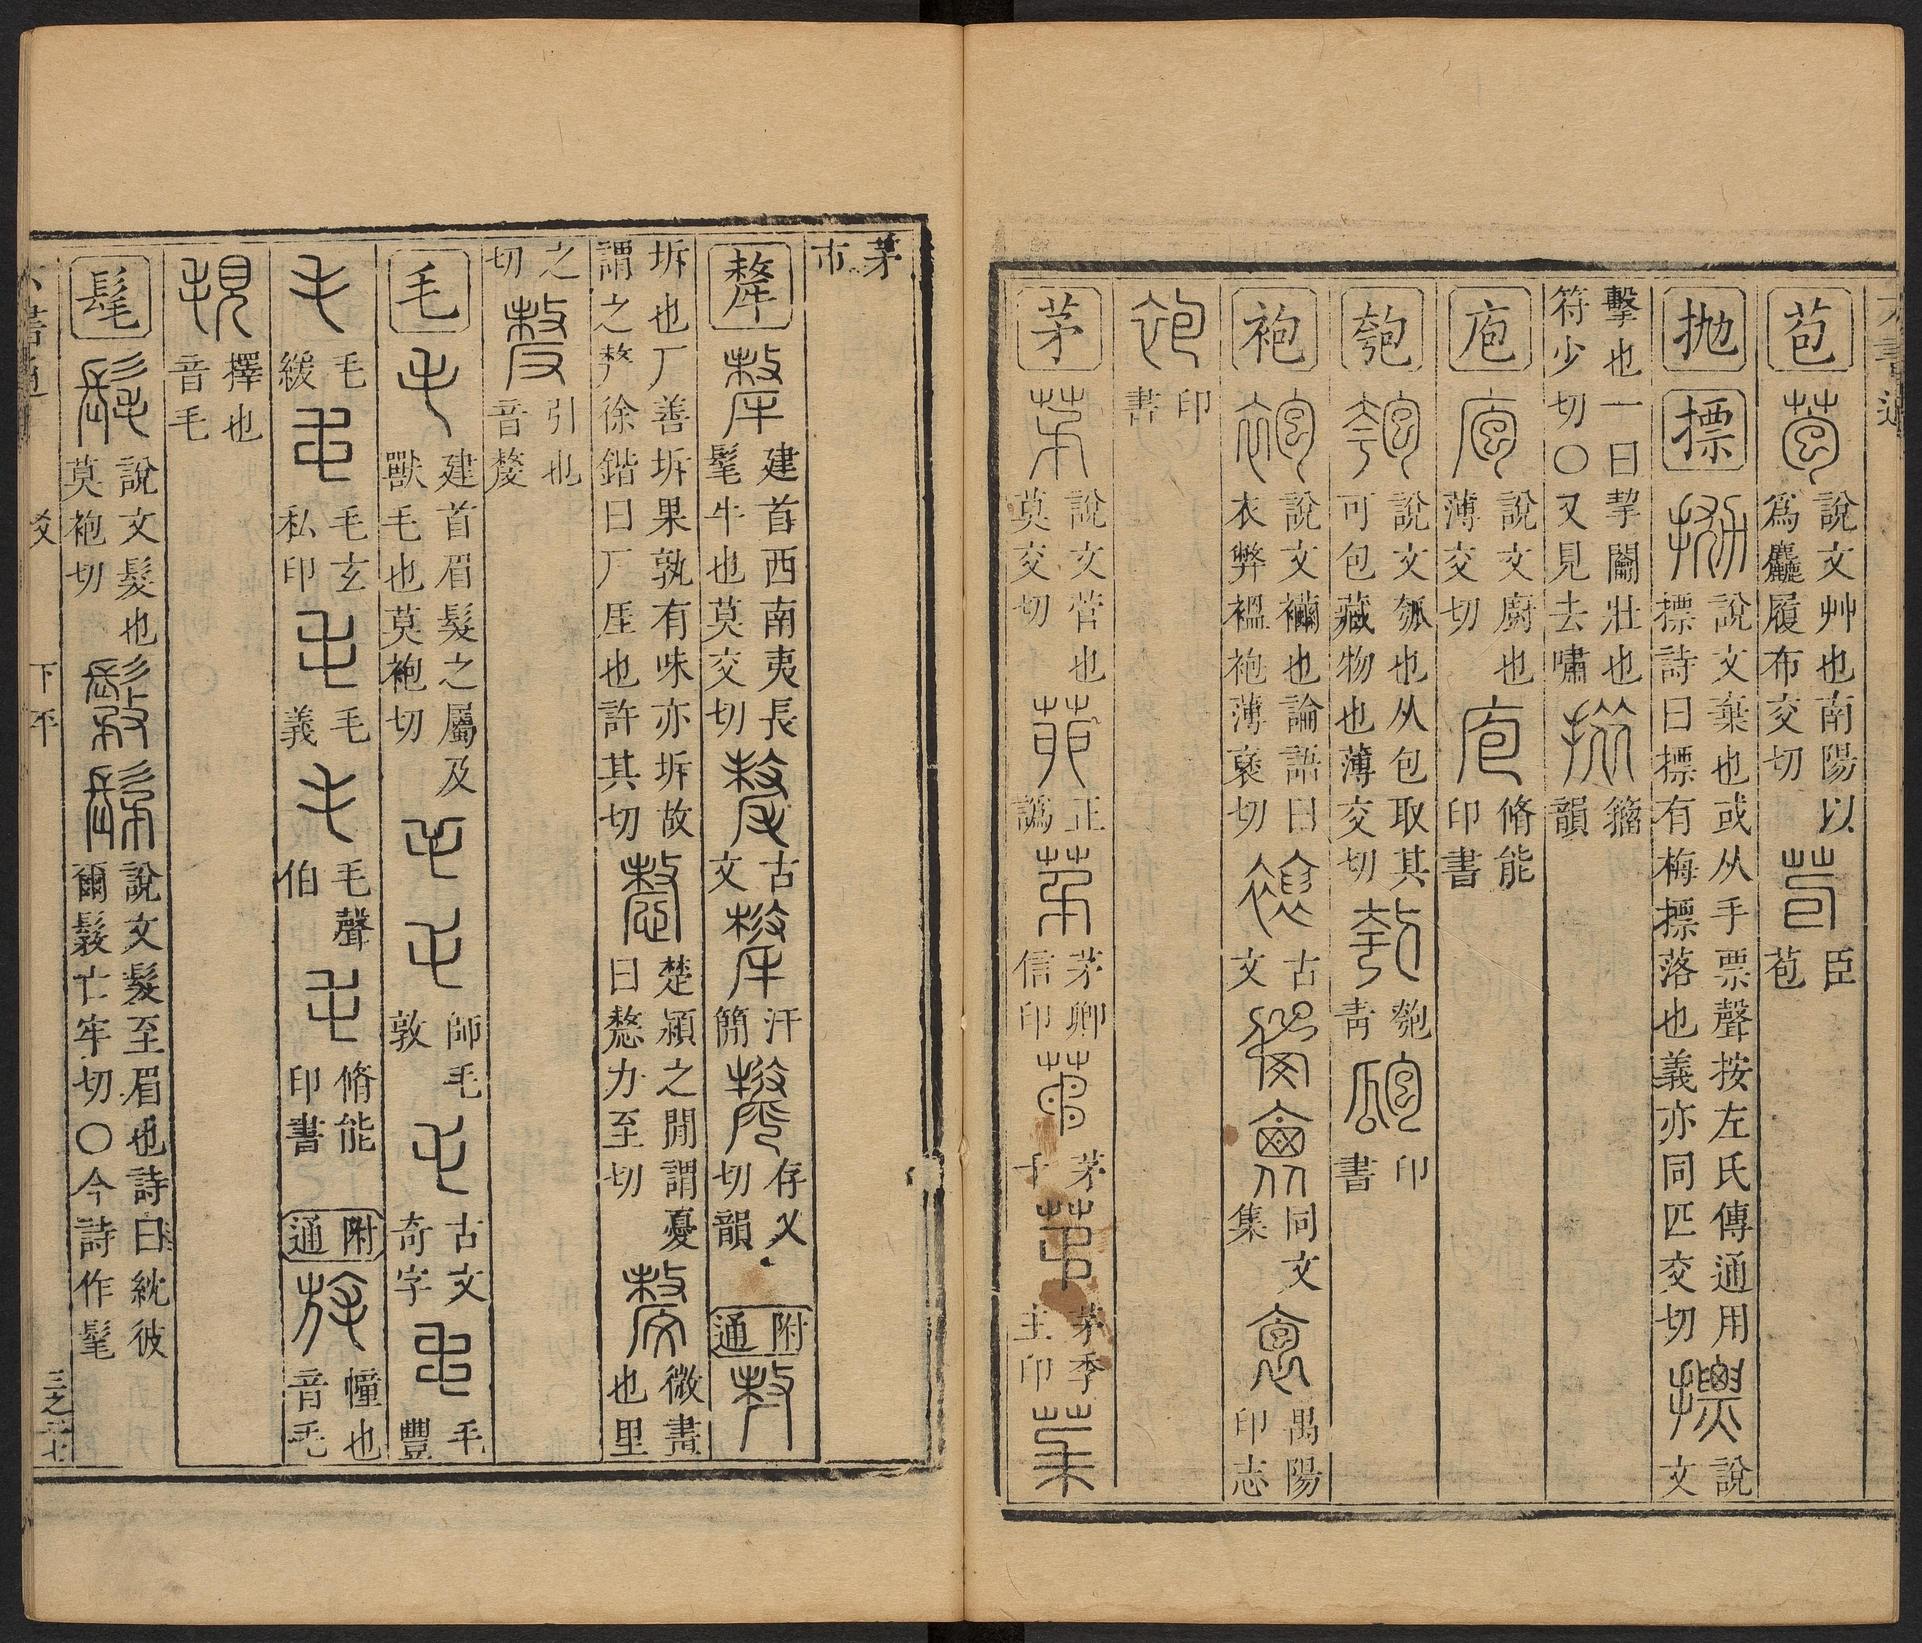 六書通
苞 說文艸也南陽以爲麤履布交切 臣苞
拋 摽 說文棄也或从手票聲按左氏傳通用摽詩曰摽有梅摽落也義亦同匹交切 說文
擊也一曰挈闟壯也符少切〇又見去嘯 籀韻
庖 說文廚也薄交切 脩能印書
匏 說文瓠也从包取其可包藏物也薄交切 匏靑 印書
袍 說文襺也論語曰衣弊褞袍薄襃切 古文 同文集 禺陽印志
印書
茅 說文菅也莫交切 正譌 茅卿信印 茅 茅季主印
茅市
犛 建首西南夷長髦牛也莫交切 古文 汗簡 存乂切韻 附通
坼也厂善坼果孰有味亦坼故謂之𠩺徐鍇曰厂厓也許其切 楚潁之閒謂憂曰㦒力至切 微畫也里
之切 引也音嫠
毛 建首眉髮之屬及獸毛也莫袍切 師毛敦 古文奇字 毛豐
毛緩 毛玄私印 毛義 毛聲伯 脩能印書 附通 幢也音毛
擇也音毛
髦 說文髮也莫袍切 說文髮至眉也詩曰紞彼爾鬏亡牢切〇今詩作髦
六書通 爻 下平 三之二十七